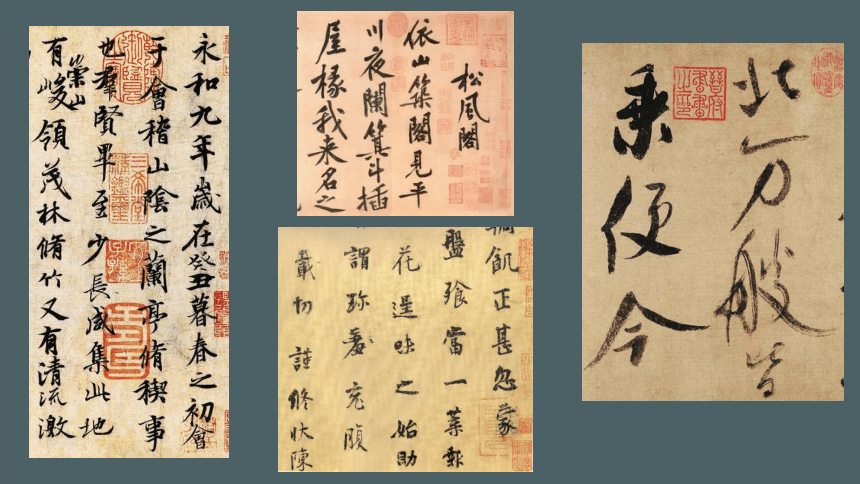 永和九年歲在癸丑暮春之初會
于會稽山陰之蘭亭脩禊事
也羣賢畢至少長咸集此地
有崇山峻領茂林脩竹又有清流激
松風閣
依山築閣見平
川夜闌箕斗插
屋椽我来名之
輖飢正甚忽蒙
盤飱當一葉報
花逞味之始助
謂珍羞充腹
載切謹脩狀陳
北万艘皆
乗便今